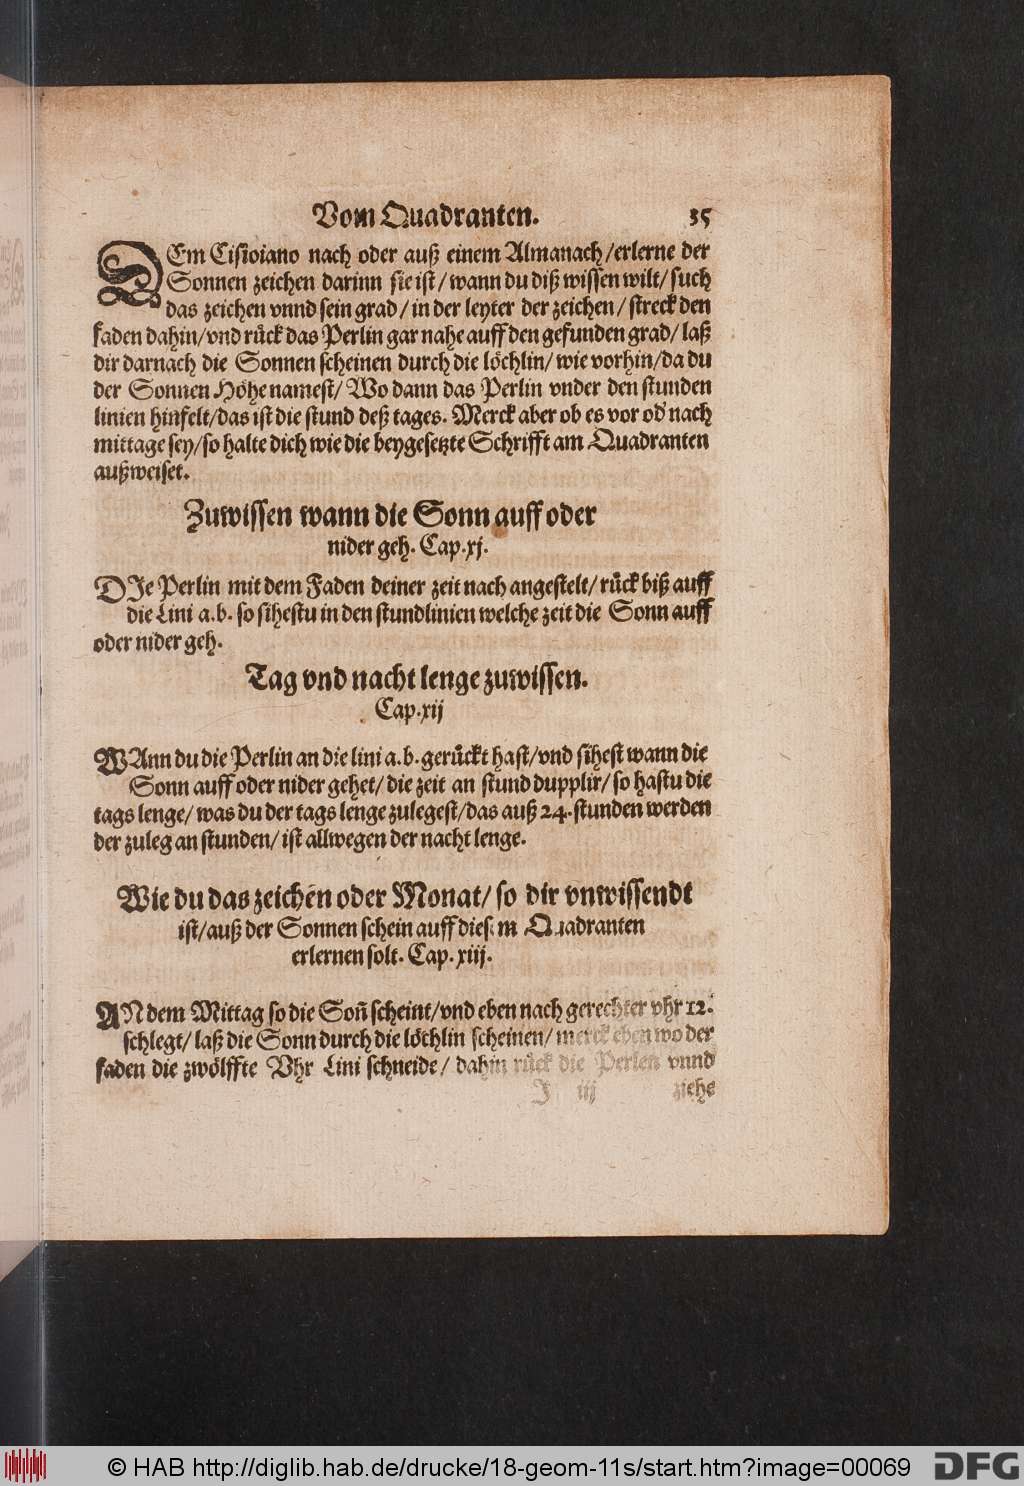 Vom Quadranten. 35
DEm Cisioiano nach oder auß einem Almanach/erlerne der
Sonnen zeichen darinn sie ist/ wann du diß wissen wilt/ such
das zeichen vnnd sein grad/ in der leyter der zeichen/ streck den
faden dahin/vnd ruͤck das Perlin gar nahe auff den gefunden grad/ laß
dir darnach die Sonnen scheinen durch die loͤchlin/ wie vorhin/da du
der Sonnen Hoͤhe namest/ Wo dann das Perlin vnder den stunden
linien hinfelt/das ist die stund deß tages. Merck aber ob es vor od' nach
mittage sey/so halte dich wie die beygesetzte Schrifft am Quadranten
außweiset.
Zuwissen wann die Sonn auff oder
nider geh. Cap.xj.
DIe Perlin mit dem Faden deiner zeit nach angestelt/ ruͤck biß auff
die Lini a.b. so sihestu in den stundlinien welche zeit die Sonn auff
oder nider geh.
Tag vnd nacht lenge zuwissen.
Cap.xij
WAnn du die Perlin an die lini a.b. geruͤckt hast/vnd sihest wann die
Sonn auff oder nider gehet/ die zeit an stund dupplir/ so hastu die
tags lenge/ was du der tags lenge zulegest/das auß 24. stunden werden
der zuleg an stunden/ ist allwegen der nacht lenge.
Wie du das zeichen oder Monat/ so dir vnwissendt
ist/auß der Sonnen schein auff diesem Quadranten
erlernen solt. Cap. xiij.
AN dem Mittag so die Soñ scheint/vnd eben nach gerechter vhr 12.
schlegt/ laß die Sonn durch die loͤchlin scheinen/ merck eben wo der
faden die zwoͤlffte Vhr Lini schneide/ dahin ruͤck die Perlen vnnd
J iij ziehe
© HAB http://diglib.hab.de/drucke/18-geom-11s/start.htm?image=00069 DFG